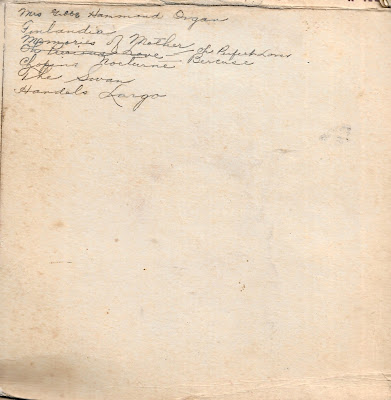 Mrs Gibbs Hammond Organ
Finlandia
Memories of Mother
Oh Promise Me Love - Oh Perfect Love
Chopins Nocturne Berceuse
The Swan
Handels Largo